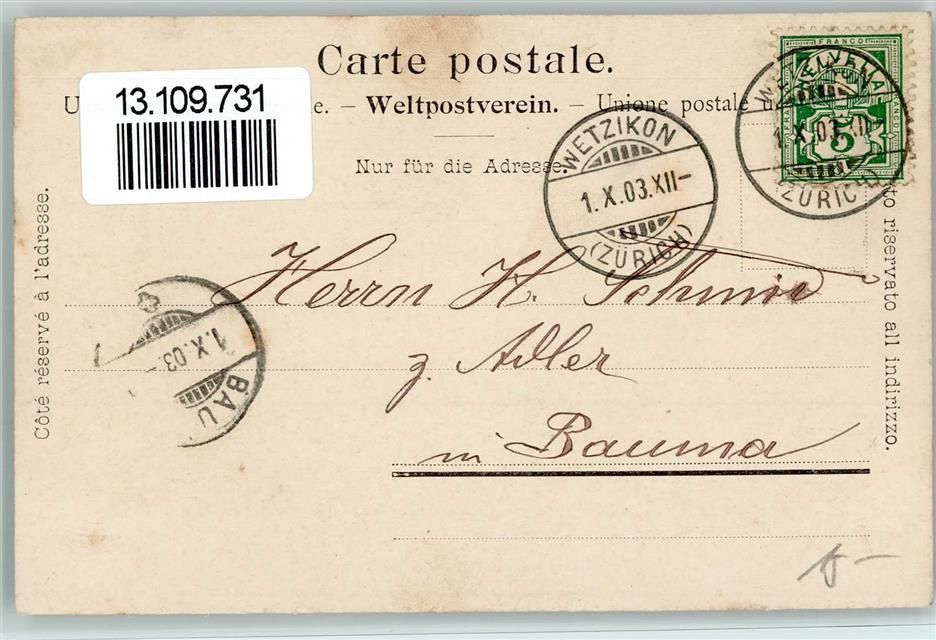 Carte postale.
13.109.731
e. – Weltpostverein. – Unione postale u
Nur für die Adresse.
FRANCO
HELVETIA
5
WETZIKON
1. X. 03. XII–
(ZÜRICH)
WE
1. X. 03.
(ZÜRICH)
Côté réservé à l'adresse.
to riservato all indirizzo.
Herrn H. Schmid
z. Adler
in Bauma
1. X. 03.–
BAU